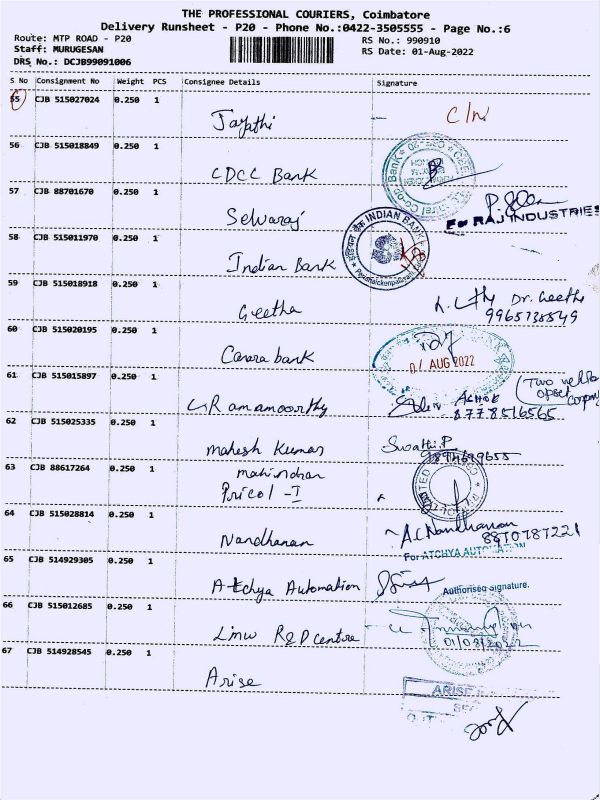 THE PROFESSIONAL COURIERS, Coimbatore
Delivery Runsheet - P20 - Phone No.:0422-3505555 - Page No.:6
Route: MTP ROAD - P20
RS No.: 990910
Staff: MURUGESAN
RS Date: 01-Aug-2022
DRS No.: DCJB99091006
S No Consignment No Weight PCS Consignee Details Signature
55 CJB 515027024 0.250 1
Jayathi
56 CJB 515018849 0.250 1
CDCC Bank
57 CJB 88701670 0.250 1
Selvaraj
For RAJ INDUSTRIES
58 CJB 515011970 0.250 1
Indian Bank
INDIAN BANK
59 CJB 515018918 0.250 1
Geetha
Dr. Geetha
9965738549
60 CJB 515020195 0.250 1
Canara bank
01 AUG 2022
61 CJB 515015897 0.250 1
G Ramamoorthy
ASHOK
8778516565
Two
62 CJB 515025335 0.250 1
Mahesh Kumar
Swathi P
63 CJB 88617264 0.250 1
Pricol - I
64 CJB 515028814 0.250 1
Nandhanan
A.C. Nandhanan
8870787221
For ATCHYA AUTOMATION
65 CJB 514929305 0.250 1
Atchya Automation
Authorised Signature.
66 CJB 515012685 0.250 1
LMW R&D centre
01/08/2022
67 CJB 514928545 0.250 1
Arise
ARISE